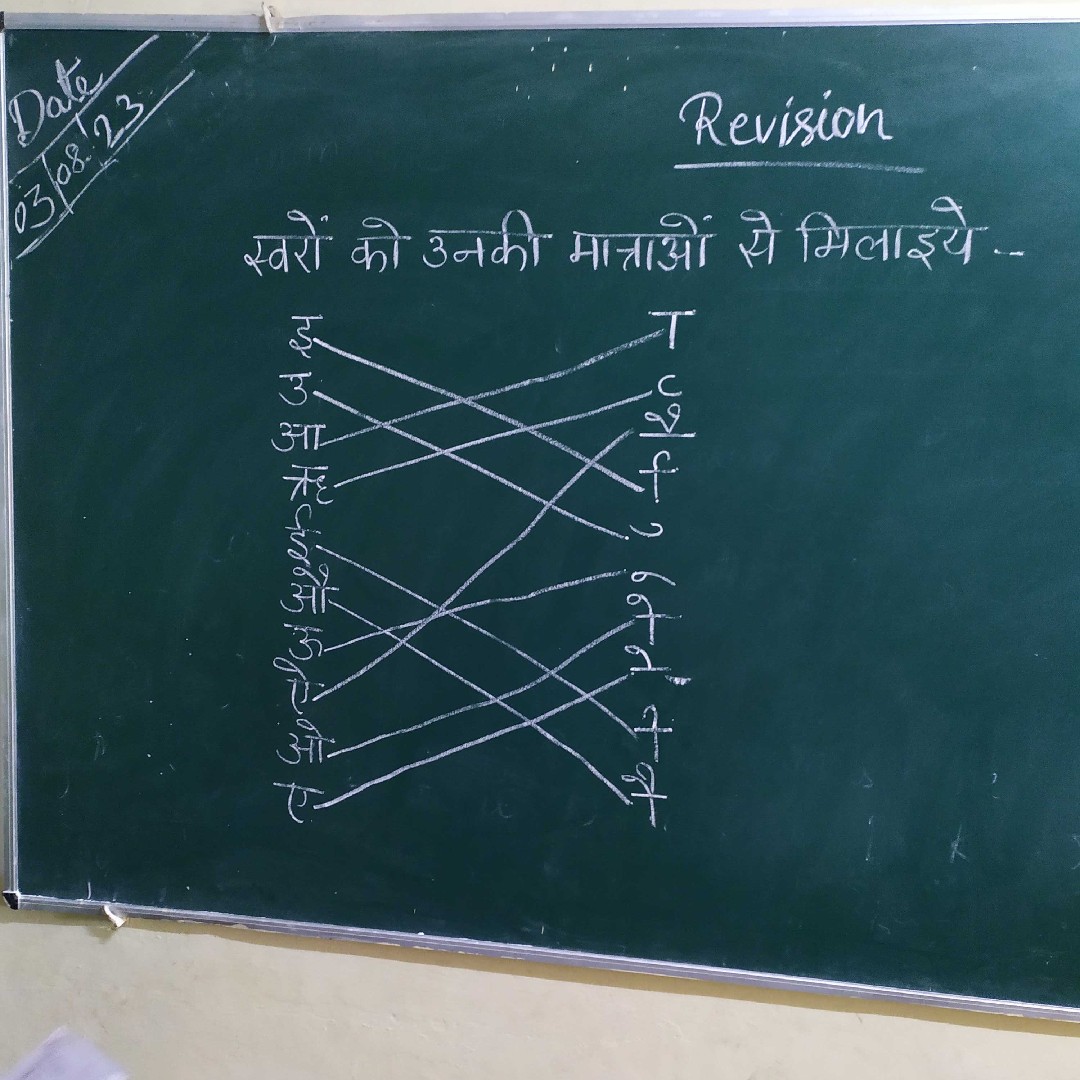 Date
03/08/23
Revision
स्वरों को उनकी मात्राओं से मिलाइये --
इ ा
उ ृ
आ ै
ऋ ि
ई ु
औ ू
ऊ ो
ऐ े
ओ ी
ए ौ